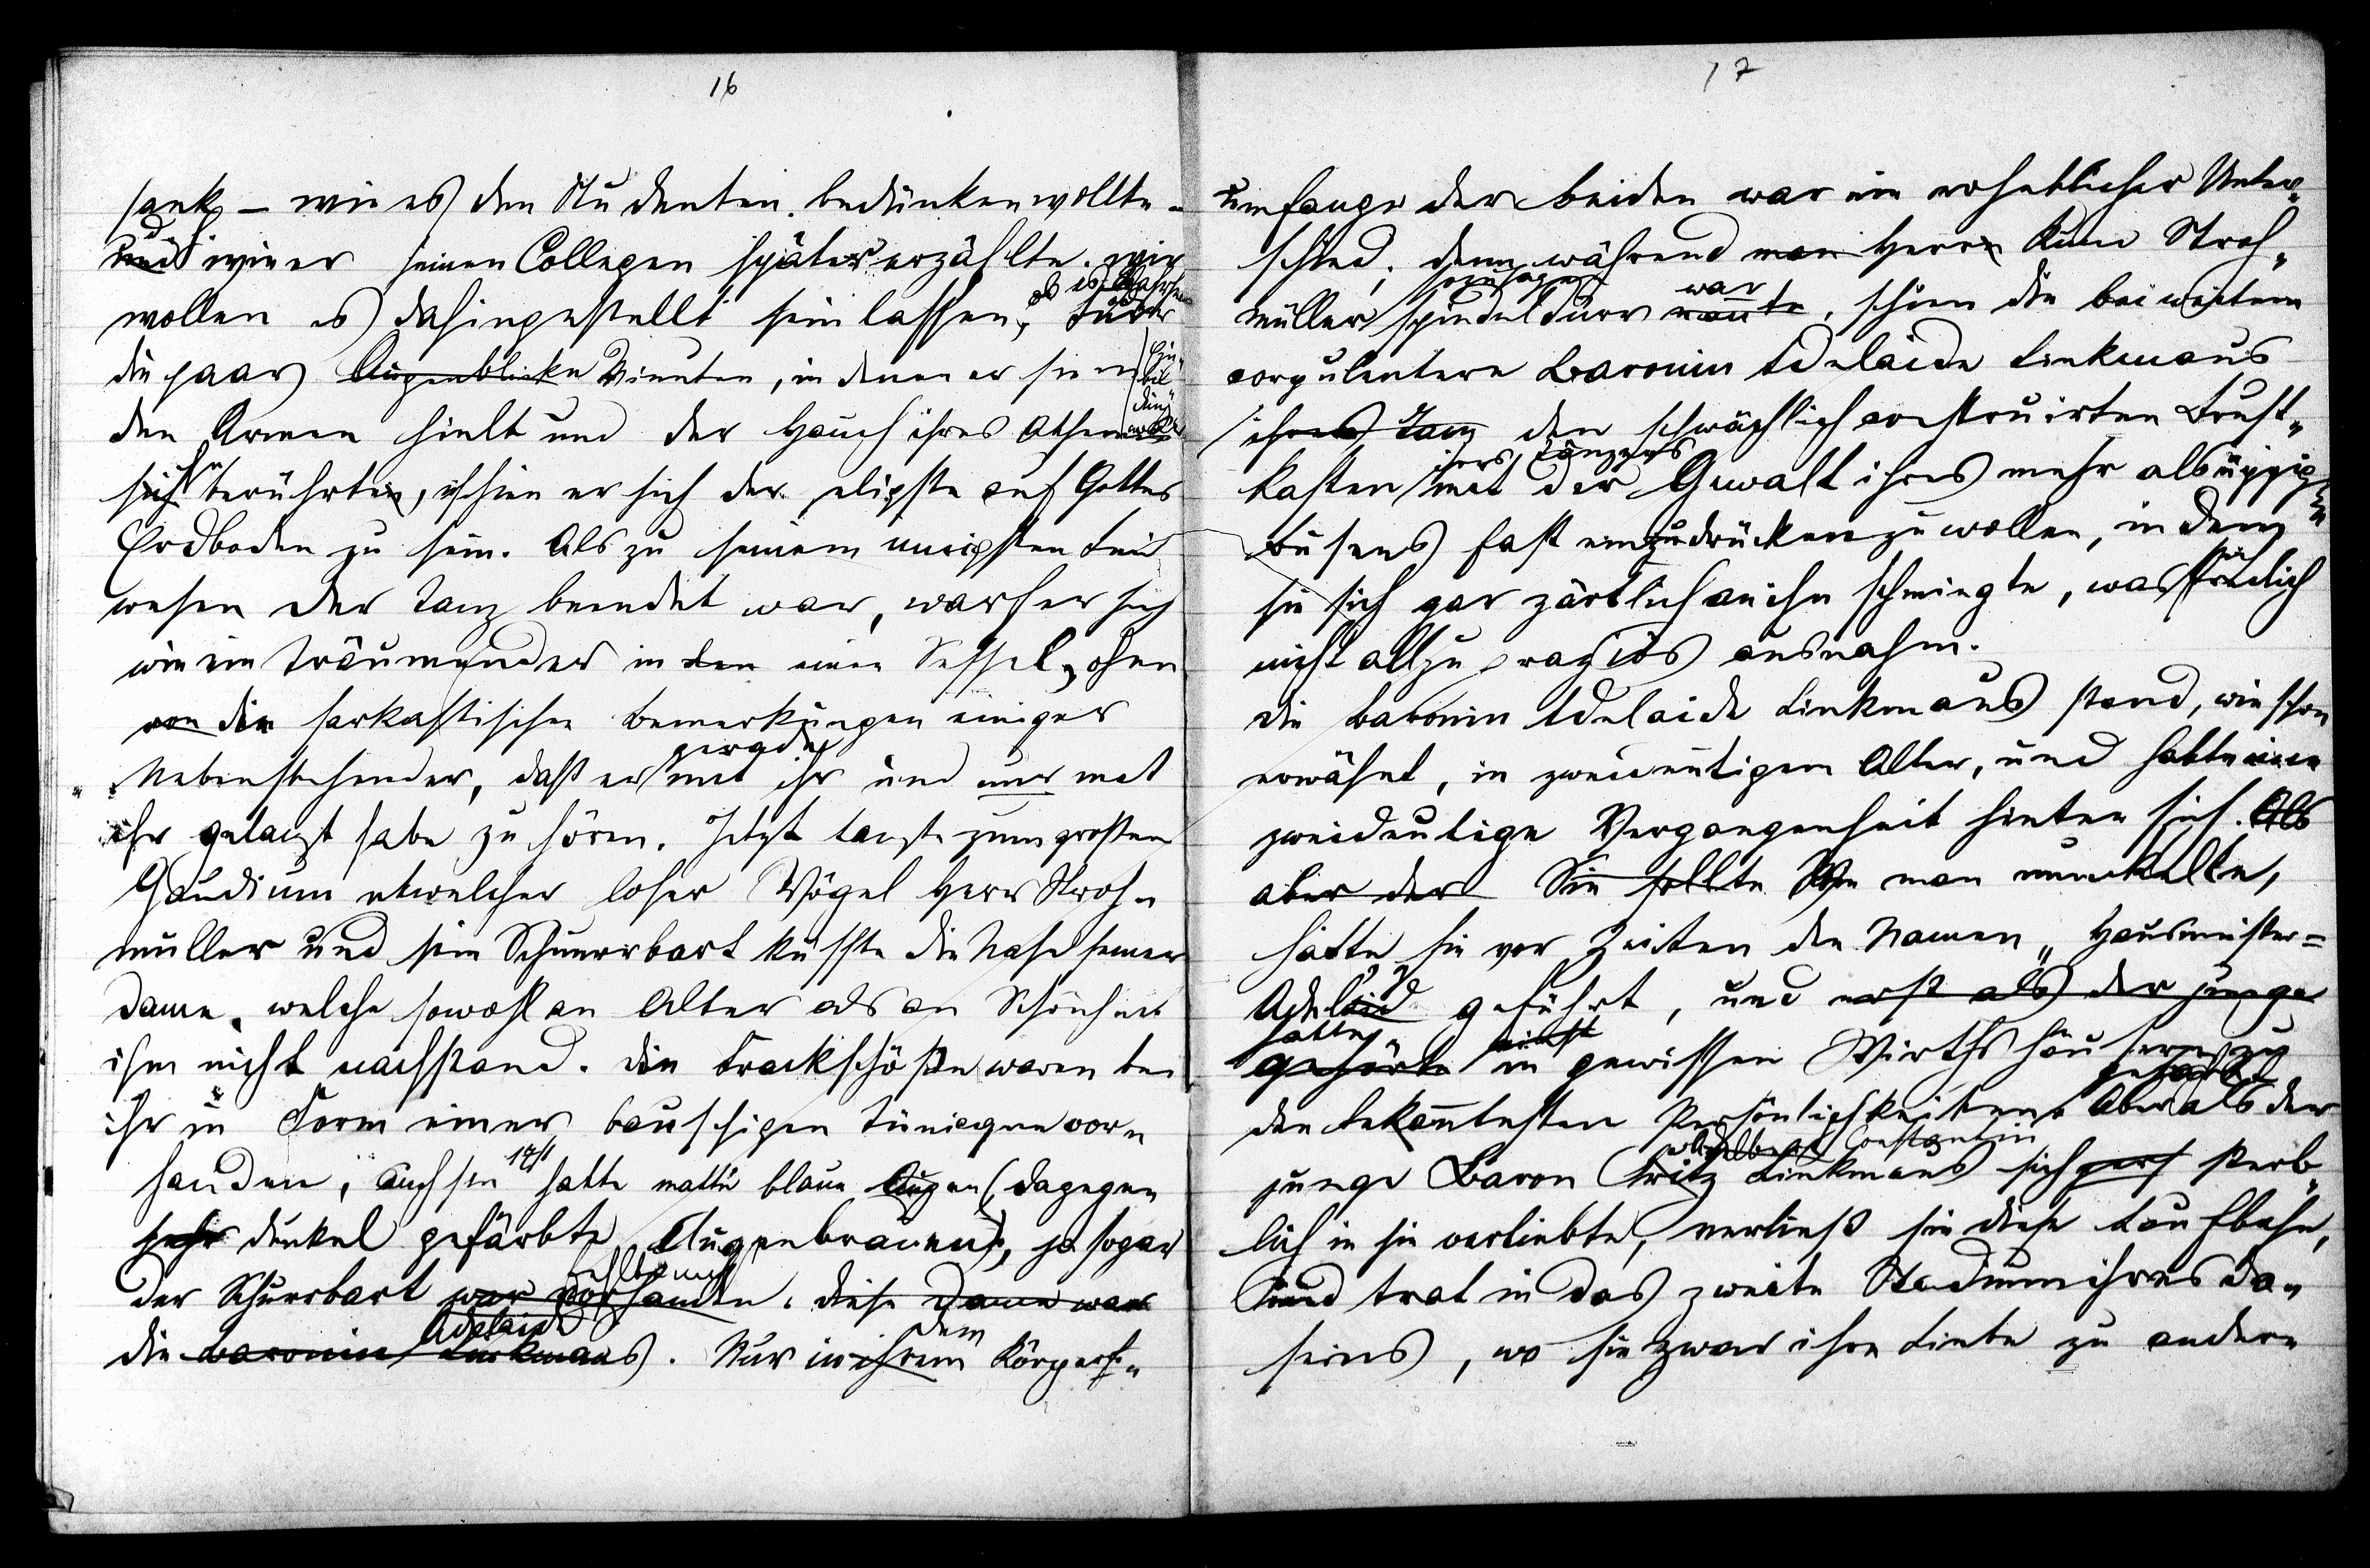 16
sank – wie es den Studenten bedünken wollte –
und wie er seinen Collegen später erzählte. wir
wollen es dahingestellt sein lassen, ob es Wahrheit
die paar Augenblicke Minuten, in denen er sie in
den Armen hielt und der Hauch ihres Athems
sich berührten, schien er sich der seligste auf Gottes
Erdboden zu sein. Als zu seinem innigsten Leid
wesen der Tanz beendet war, warf er sich
wie ein Träumender in den einen Sessel, ohne
von die sarkastischen Bemerkungen einiger
gerade
Nebenstehender, daß er mit ihr und nur mit
ihr getanzt habe zu hören. Jetzt tanzte zum großen
Gaudium etwelcher loser Vögel Herr Stroh-
müller und sein Schnurrbart küsste die Nase seiner
Dame, welche sowohl an Alter als an Schönheit
ihm nicht nachstand. Die Frackschöße waren bei
ihr in Form einer bauschigen Tunique vor-
handen, auch sie hatte matte blaue Augen (dagegen
sehr dunkel gefärbte Augenbrauen), ja sogar
fehlte auch
der Schnurrbart war vorhanden. diese Dame war
Adelaide
die Baronin Linkmaus. Nur in ihrem dem Körper-
17
umfange der beiden war ein erheblicher Unter-
schied, denn während man Herrn Kuno Stroh-
sozusagen war
müller spindeldürr nannte, schien die bei weitem
corpulentere Baronin Adelaide Linkmaus
ihres Tanz den schwächlich construirten Brust-
ihres Tänzers
kasten mit der Gewalt ihres mehr als üppigen
Busens fast einzudrücken zu wollen, indem
sie sich gar zärtlich an ihn schmiegte, was freilich
nicht allzu graziös ausnahm.
Die Baronin Adelaide Linkmaus stand, wie schon
erwähnt, in zweideutigem Alter, und hatte eine
zweideutige Vergangenheit hinter sich. Als
aber der Sie sollte Wie man munkelte,
hatte sie vor Zeiten den Namen „Hausmeister-
Adelaid geführt, und erst als der junge
hatte einst
gehörte in gewissen Wirthshäusern zu
gehört
den bekanntesten Persönlichkeiten. Aber als der
Constantin
junge Baron Fritz Linkmaus sich sterb-
lich in sie verliebte, verließ sie diese Laufbahn,
und trat in das zweite Stadium ihres Da-
seins, wo sie zwar ihre Liebe zu andern